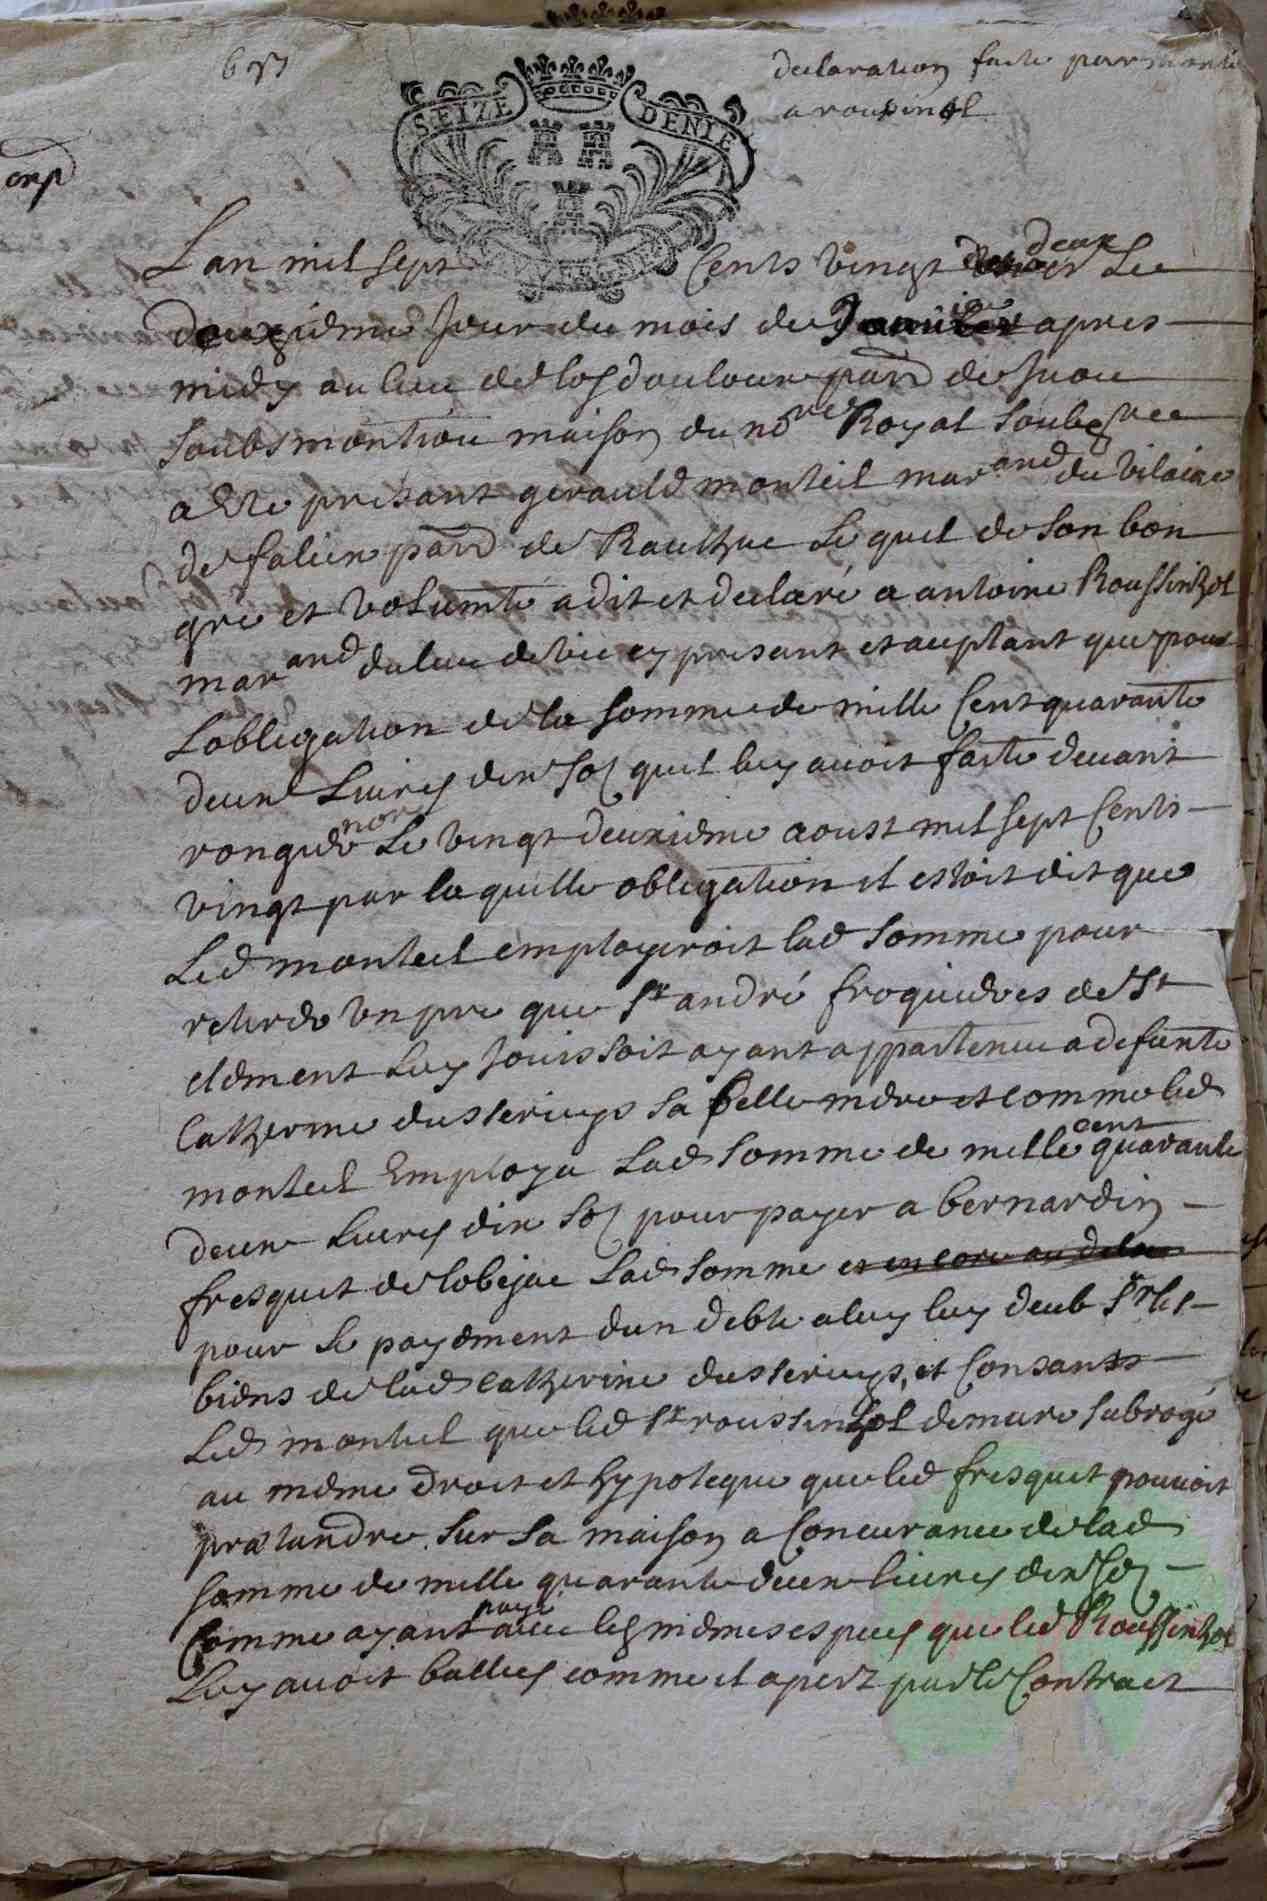 declaration faite par
a roupinol
SEIZE DENIE
Lan mil sept Cents vingt deux Le
deuxieme Jour du mois de Janvier apres
midy au lieu de lasdouloux parr de Juou
soubs montiou maison du nore Royal soubsne
a este presant gerauld monteil marand du vilaige
de falien parr de Raulhac Lequel de son bon
gre et volumte a dit et declaré a antoine Roussinhol
marand du lieu de vic cy presant et aceptant que pour
Lobligation de la somme de mille Cent quarante
deux Livres dix sol quil luy avoit faite devant
nore Le vingt deuxieme aoust mil sept Cents
vingt par laquelle obligation il estoit dit que
Led monteil employeroit lad somme pour
retirer un pre que Sr andré froquieres de St
clement Luy Jouissoit ayant appartenu a defunte
Catherine dusserieys sa belle mere et comme led
monteil Employa Lad somme de mille cent quarante
deux Livres dix sol pour payer a bernardin
fresquet de lobejac Lad somme et encore au dela
pour le payement dun debte a luy deub sr les
biens de lad catherine dusserieys, et Consants
Led monteil que led Sr roussinhol demure subrogé
au meme droit et hypoteque que led fresquet pouvoit
pratandre sur sa maison a Concurance de lad
somme de mille quarante deux livres dix sol
Comme ayant paye avec les memes especes que led Roussinhol
Luy avoit ballies comme il apert par le Contract